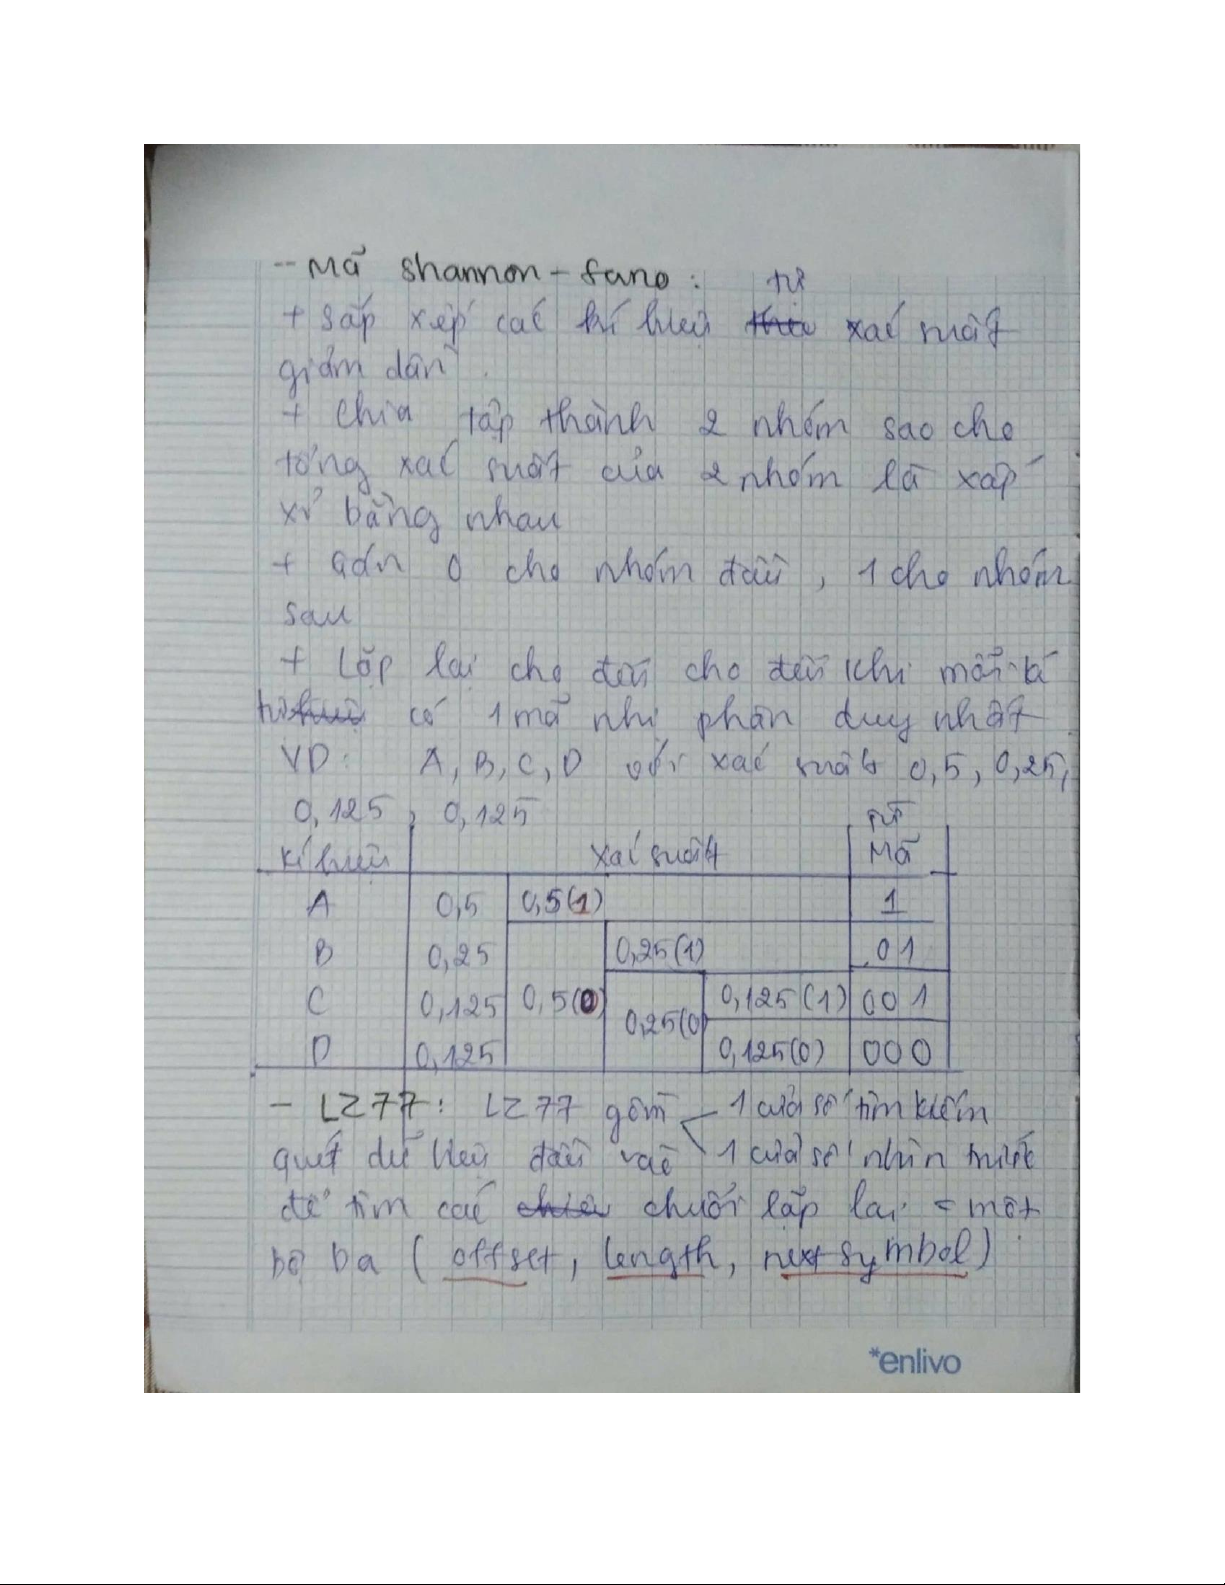 - Mã Shannon - fano: từ
+ Sắp xếp các kí hiệu xác suất
giảm dần.
+ Chia tập thành 2 nhóm sao cho
tổng xác suất của 2 nhóm là xấp
xỉ bằng nhau
+ Gán 0 cho nhóm đầu, 1 cho nhóm
sau
+ Lặp lại cho đến cho đến khi mỗi kí
hiệu có 1 mã nhị phân duy nhất.
VD: A, B, C, D với xác suất 0,5, 0,25,
0,125, 0,125
Kí hiệu Xác suất Từ Mã
A 0,5 0,5(1) 1
B 0,25 0,25(1) 01
C 0,125 0,5(0) 0,25(0) 0,125(1) 001
D 0,125 0,125(0) 000
- LZ77: LZ77 gồm 1 cửa sổ tìm kiếm
quét dữ liệu đầu vào 1 cửa sổ nhìn trước
để tìm các chuỗi lặp lại = một
bộ ba (offset, length, next symbol)
*enlivo